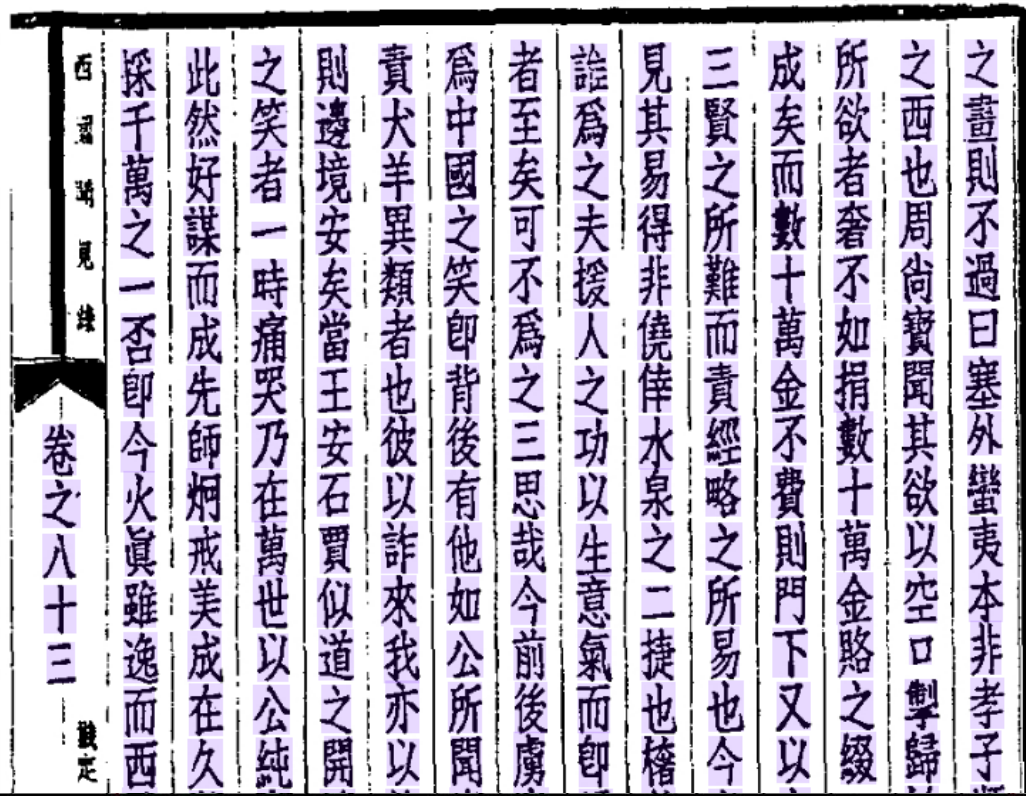 之畫則不過曰塞外蠻夷本非孝子
之西也周尙寶聞其欲以空口掣歸
所欲者奢不如捐數十萬金賂之綴
成矣而數十萬金不費則門下又以
三賢之所難而責經略之所易也今
見其易得非僥倖水泉之二捷也㯭
誰爲之夫援人之功以生意氣而卽
者至矣可不爲之三思哉今前後虜
爲中國之笑卽背後有他如公所聞
責犬羊異類者也彼以詐來我亦以
則邊境安矣當王安石賈似道之開
之笑者一時痛哭乃在萬世以公純
此然好謀而成先師炯戒美成在久
採千萬之一否卽今火眞雖逸而西
西 聞見錄
卷之八十三